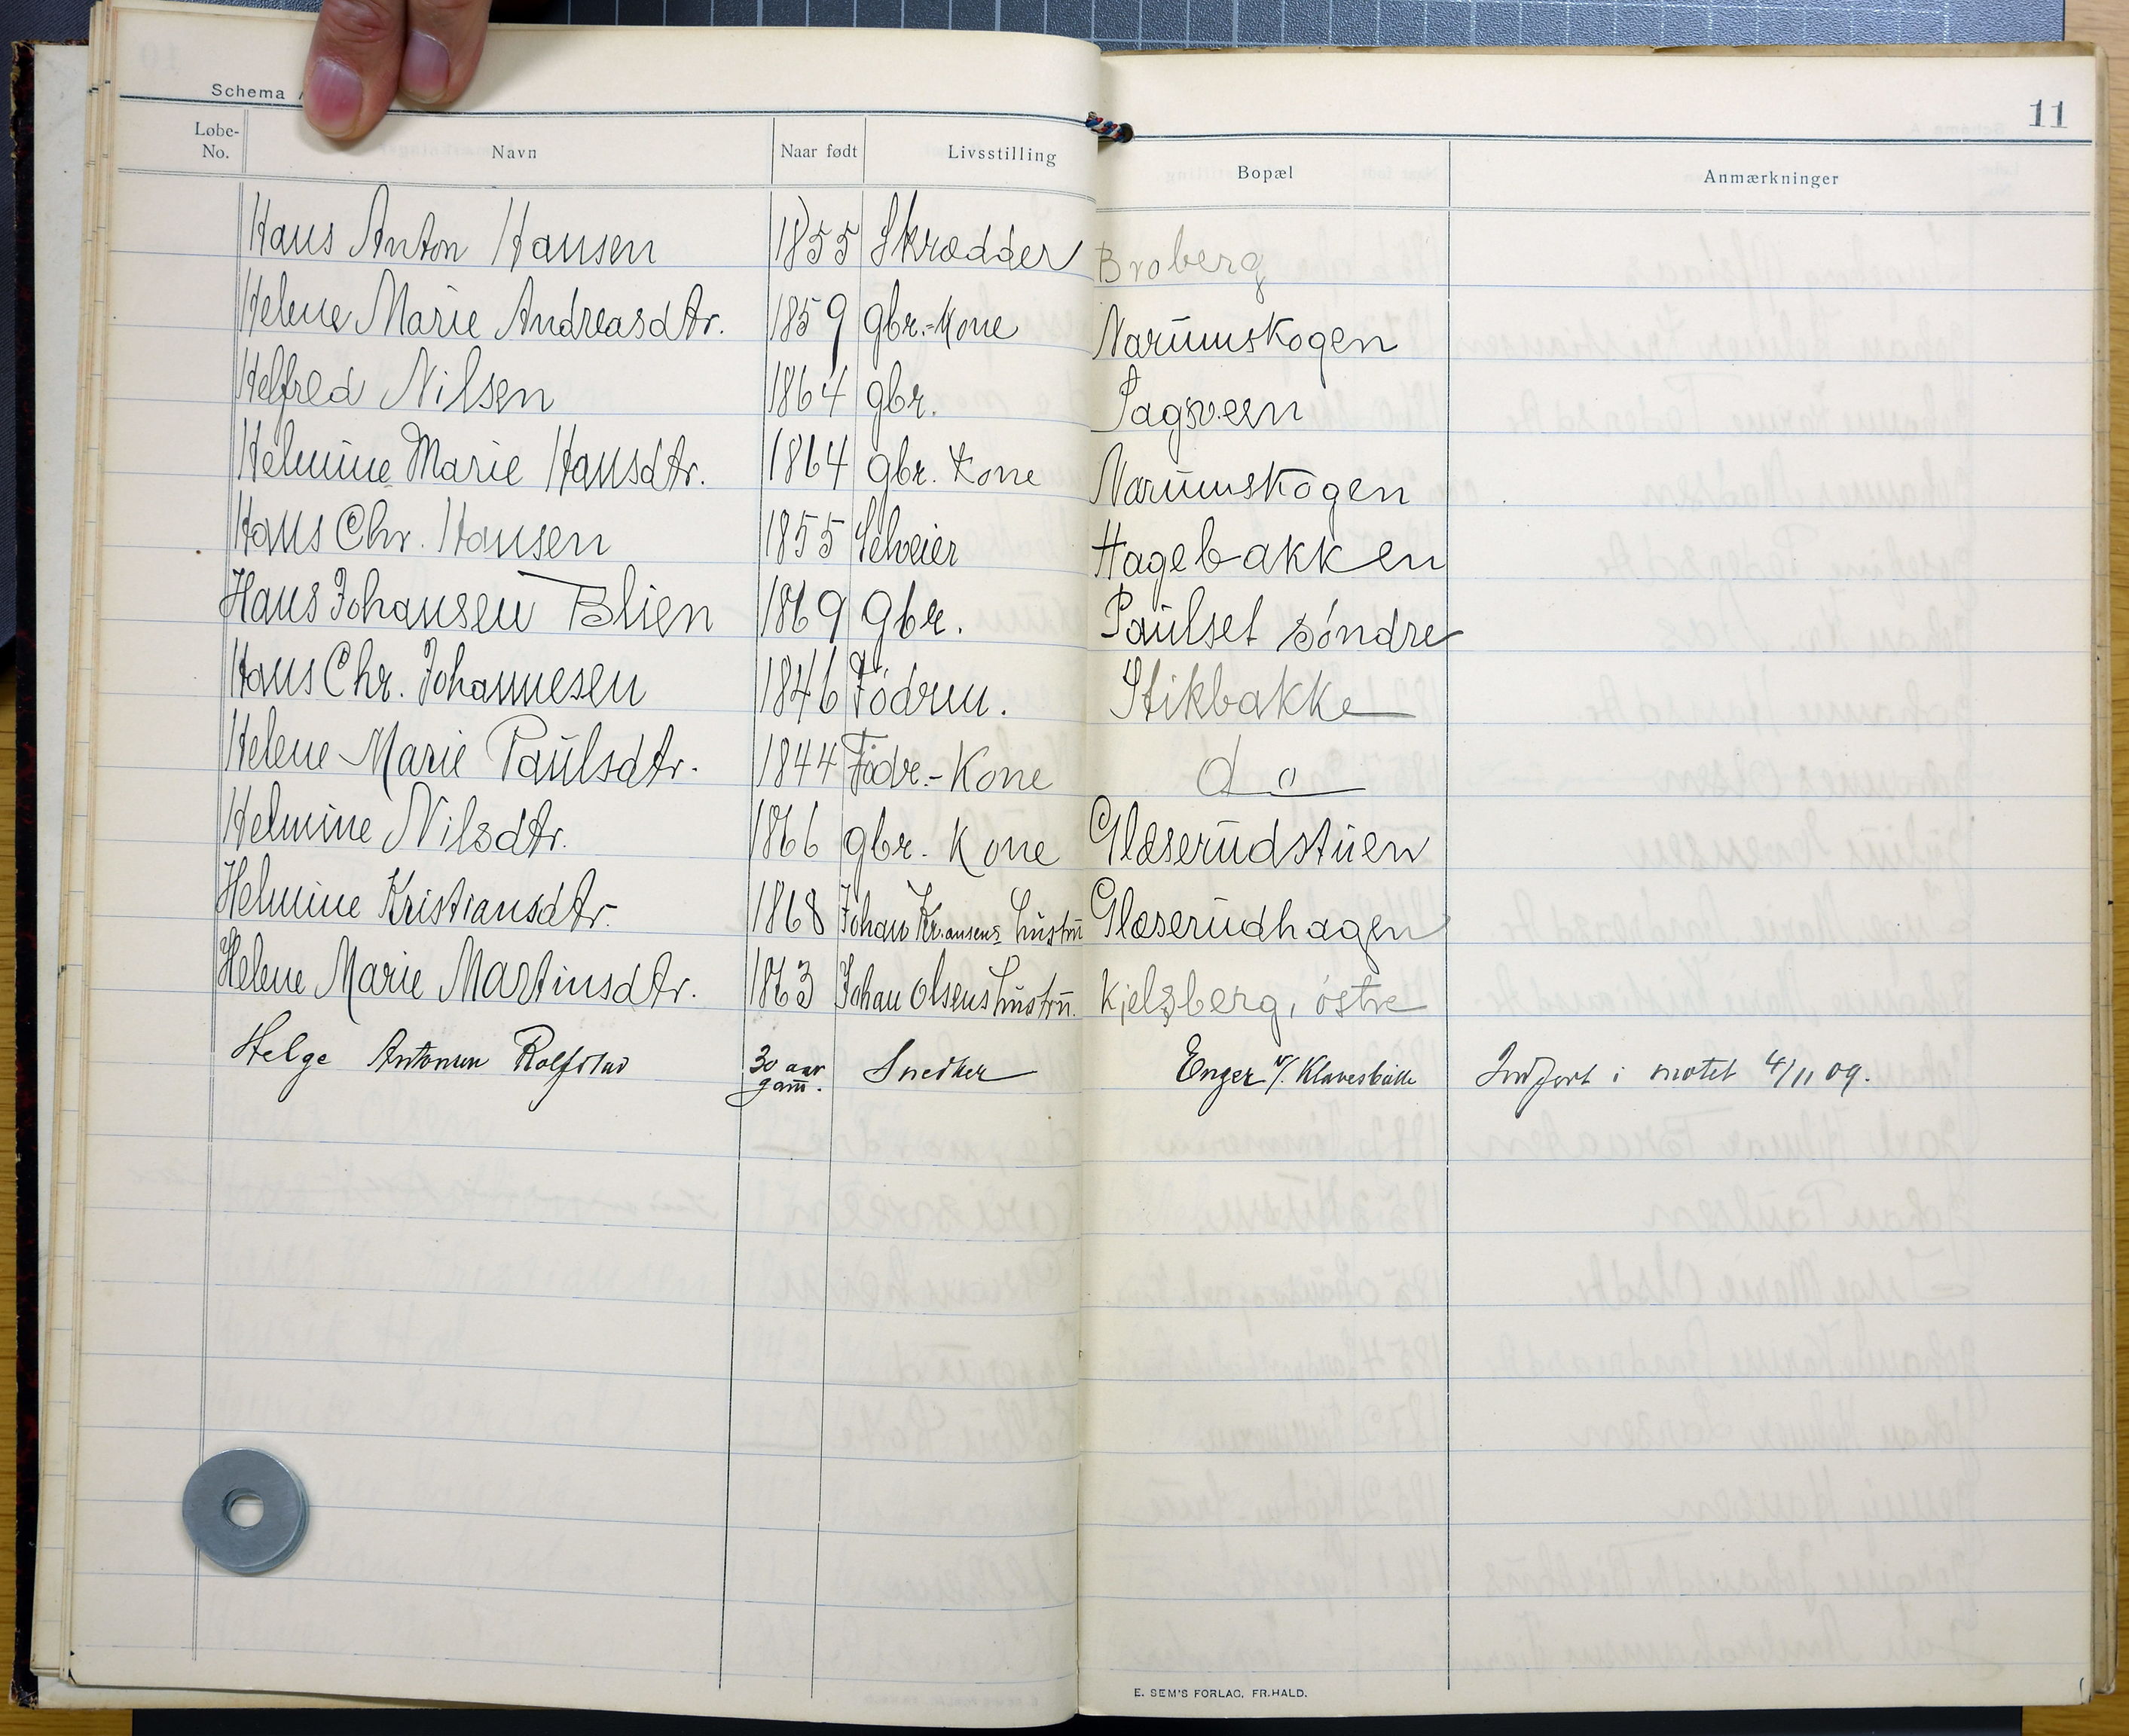 Schema
11
Løbe-No. Navn Naar født Livsstilling Bopæl Anmærkninger
Hans Anton Hansen 1855 Skrædder Broberg
Helene Marie Andreasdtr. 1859 gbr.-Kone Narumskogen
Helfred Nilsen 1864 gbr. Sagvern
Helmine Marie Hansdtr. 1864 gbr. Kone Narumskogen
Hans Chr. Hansen 1855 Selveier Hagebakken
Hans Johansen Blien 1869 Gbr. Paulset søndre
Hans Chr. Johannesen 1846 Födrm. Stikbakke
Helene Marie Paulsdtr. 1844 Födr.-Kone do
Helmine Nilsdtr. 1866 gbr. Kone Glæserudstuen
Helmine Kristiansdtr. 1868 Johan Kr.ansens hustru Glæserudhagen
Helene Marie Martinsdtr. 1863 Johan Olsens hustru. Kjelsberg, östre
Helge Antonsen Rolfstad 30 aar gam. Snedker Enger v/. Klavesbakke Indført i møtet 4/11 09.
E. SEM'S FORLAG, FR.HALD.